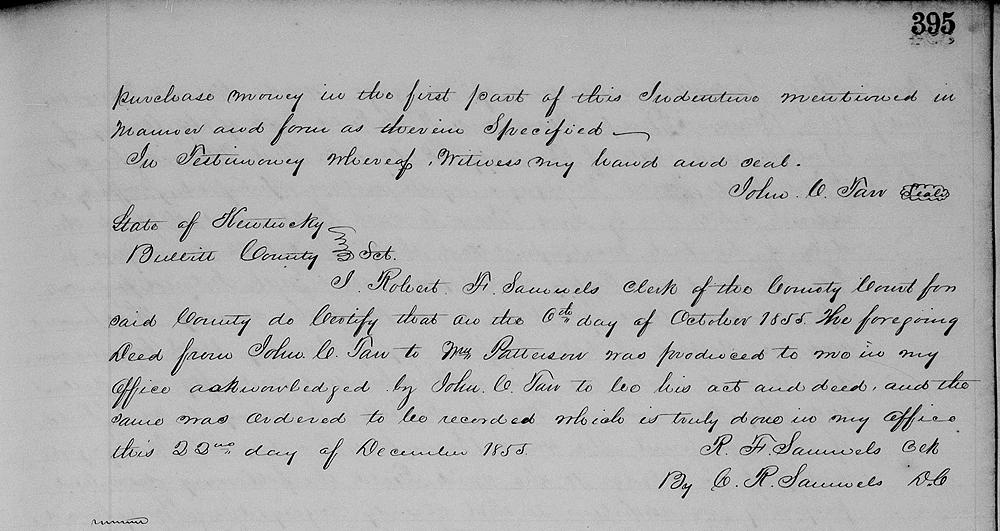 395
purchase money in the first part of this Indenture mentioned in
manner and form as therein Specified
In Testimoney whereof, Witness my hand and seal.
John. C. Tarr Seal
State of Kentucky
Bullitt County Sct.
I. Robert. F. Samuels Clerk of the County Court for
said County do Certify that on the 6th day of October 1855. The foregoing
Deed from John. C. Tarr to Patterson was produced to me in my
Office acknowledged by John. C. Tarr to be his act and deed, and the
same was ordered to be recorded which is truly done in my office
this 22nd day of December 1855.
R. F. Samuels Clk
By C. R. Samuels D.C